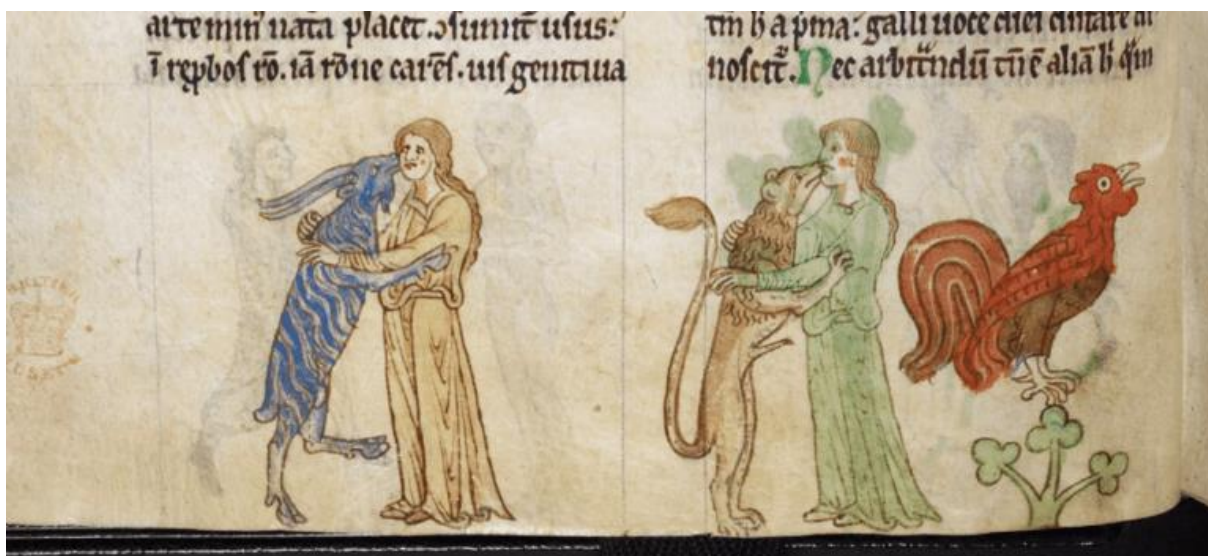 arte min᷒ nata placet. ɔsumit usus:
ī rep̱bos rō. iā rōne carēs. uis genitiua
tm̄ h̄ a p̍ma: galli uoce diei distare di
noscit᷑. Nec arbitͣndū tn̄ ē aliā h̄ qͣm